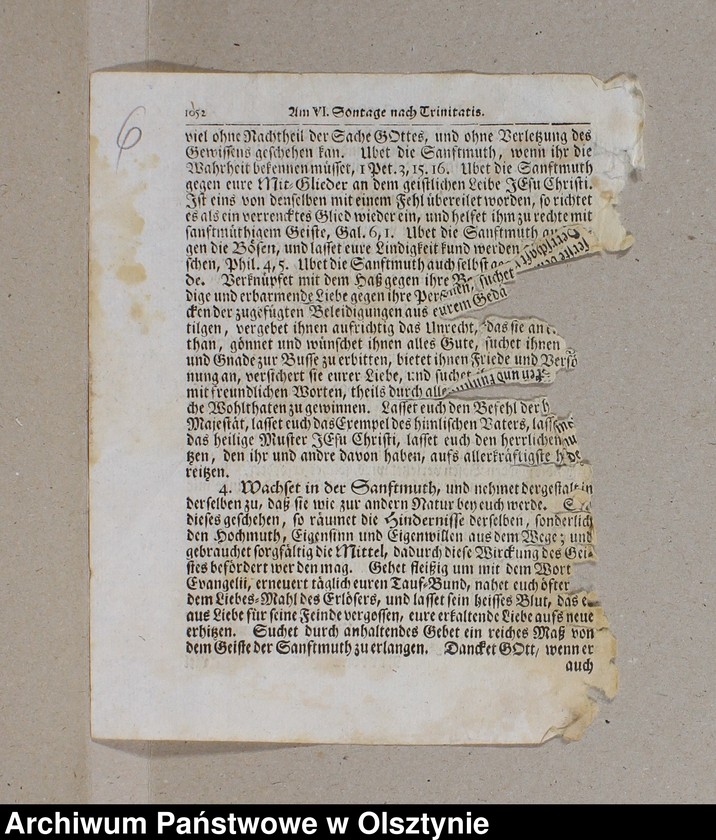 6
1052 Am VI. Sontage nach Trinitatis.
viel ohne Nachtheil der Sache GOttes, und ohne Verletzung des
Gewissens geschehen kan. Ubet die Sanftmuth, wenn ihr die
Wahrheit bekennen müsset, 1 Pet. 3, 15. 16. Ubet die Sanftmuth
gegen eure Mit-Glieder an dem geistlichen Leibe JEsu Christi.
Ist eins von denselben mit einem Fehl übereilet worden, so richtet
es als ein verrencktes Glied wieder ein, und helfet ihm zu rechte mit
sanftmüthigem Geiste, Gal. 6, 1. Ubet die Sanftmuth
gen die Bösen, und lasset eure Lindigkeit kund werden
schen, Phil. 4, 5. Ubet die Sanftmuth auch selbst
de. Verknüpfet mit dem Haß gegen ihre suchet
dige und erbarmende Liebe gegen ihre
cken der zugefügten Beleidigungen aus eurem Gedä
tilgen, vergebet ihnen aufrichtig das Unrecht, das sie an
than, gönnet und wünschet ihnen alles Gute, suchet ihnen
und Gnade zur Busse zu erbitten, bietet ihnen Friede und Versö
nung an, versichert sie eurer Liebe, und suchet
mit freundlichen Worten, theils durch
che Wohlthaten zu gewinnen. Lasset euch den Befehl der
Majestät, lasset euch das Exempel des himlischen Vaters,
das heilige Muster JEsu Christi, lasset euch den herrlichen
tzen, den ihr und andre davon haben, aufs allerkräftigste
reitzen.
4. Wachset in der Sanftmuth, und nehmet dergestalt in
derselben zu, daß sie wie zur andern Natur bey euch werde.
dieses geschehen, so räumet die Hindernisse derselben, sonderlich
den Hochmuth, Eigensinn und Eigenwillen aus dem Wege; und
gebrauchet sorgfältig die Mittel, dadurch diese Wirckung des Gei-
stes befördert werden mag. Gehet fleißig um mit dem Wort
Evangelii, erneuert täglich euren Tauf-Bund, nahet euch öfter
dem Liebes-Mahl des Erlösers, und lasset sein heisses Blut, das
aus Liebe für seine Feinde vergossen, eure erkaltende Liebe aufs neue
erhitzen. Suchet durch anhaltendes Gebet ein reiches Maß von
dem Geiste der Sanftmuth zu erlangen. Dancket GOtt, wenn er
auch
Archiwum Państwowe w Olsztynie